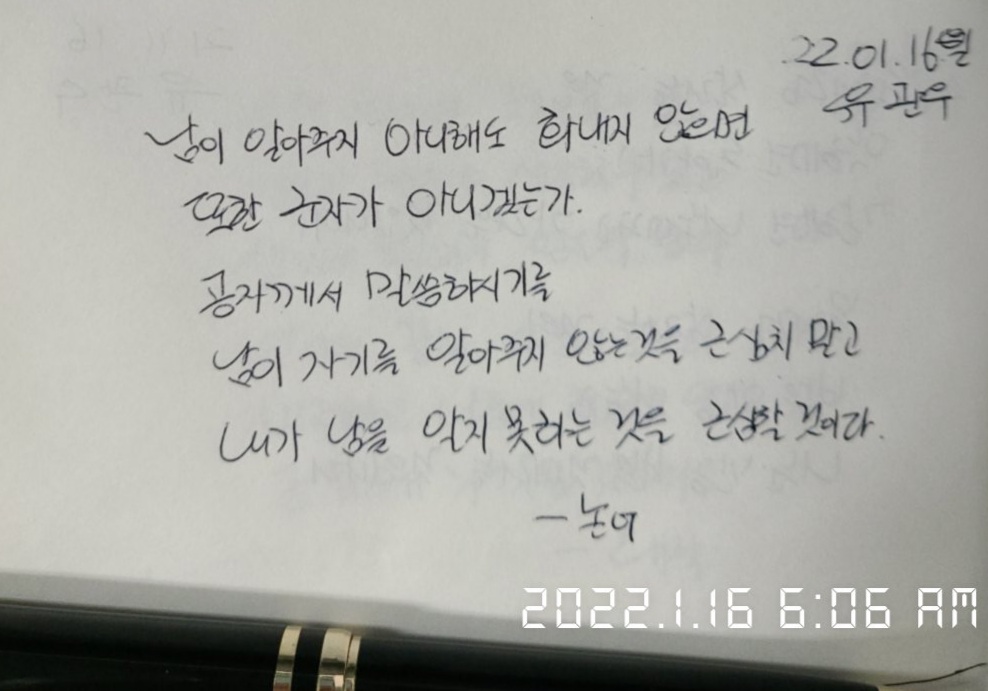 22.01.16일
유관우
남이 알아주지 아니해도 화내지 않으면
또한 군자가 아니겠는가.
공자께서 말씀하시기를
남이 자기를 알아주지 않는것을 근심치 말고
내가 남을 알지 못하는 것을 근심할 것이다.
- 논어
2022.1.16 6:06 AM